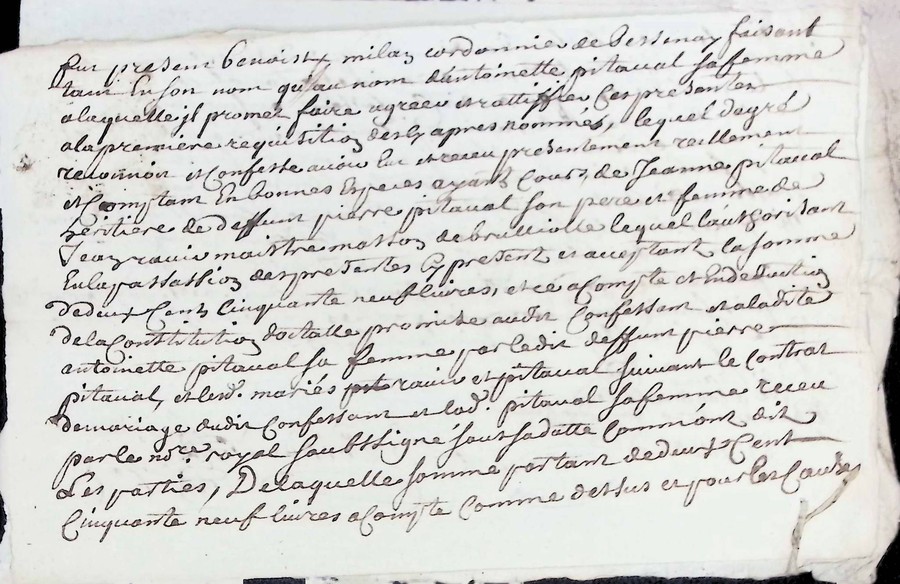 fut present benoist milan cordonnier de Bessenay faisant
tant En son nom qu'au nom d'antoinette pitaval sa femme
a laquelle il promet faire agreer et rattiffier Ces presentes
a la première réquisition des Cy apres nommés, lequel de gré
reconnoit et Confesse avoir Eu et receu presentement reellement
et Comptant En bonnes Especes ayant Cours, de Jeanne pitaval
héritière de deffunt pierre pitaval son pere et femme de
Jean ravier maistre masson de brulliolle lequel l'authorisant
En la passassion des presentes Cy present et acceptant la somme
de deux Cent Cinquante neuf livres, et ce a Compte et En deduction
de la Constitution dottalle promise audit Confessant et a ladite
antoinette pitaval sa femme par ledit deffunt pierre
pitaval, et lesd. mariés ravier et pitaval suivant le Contrat
de mariage dudit Confessant et lad. pitaval sa femme receu
par le nore. royal soubssigné sous sa datte Comm'ont dit
Les parties, De laquelle somme portant de deux Cent
Cinquante neuf livres a Compte Comme dessus et pour les Causes